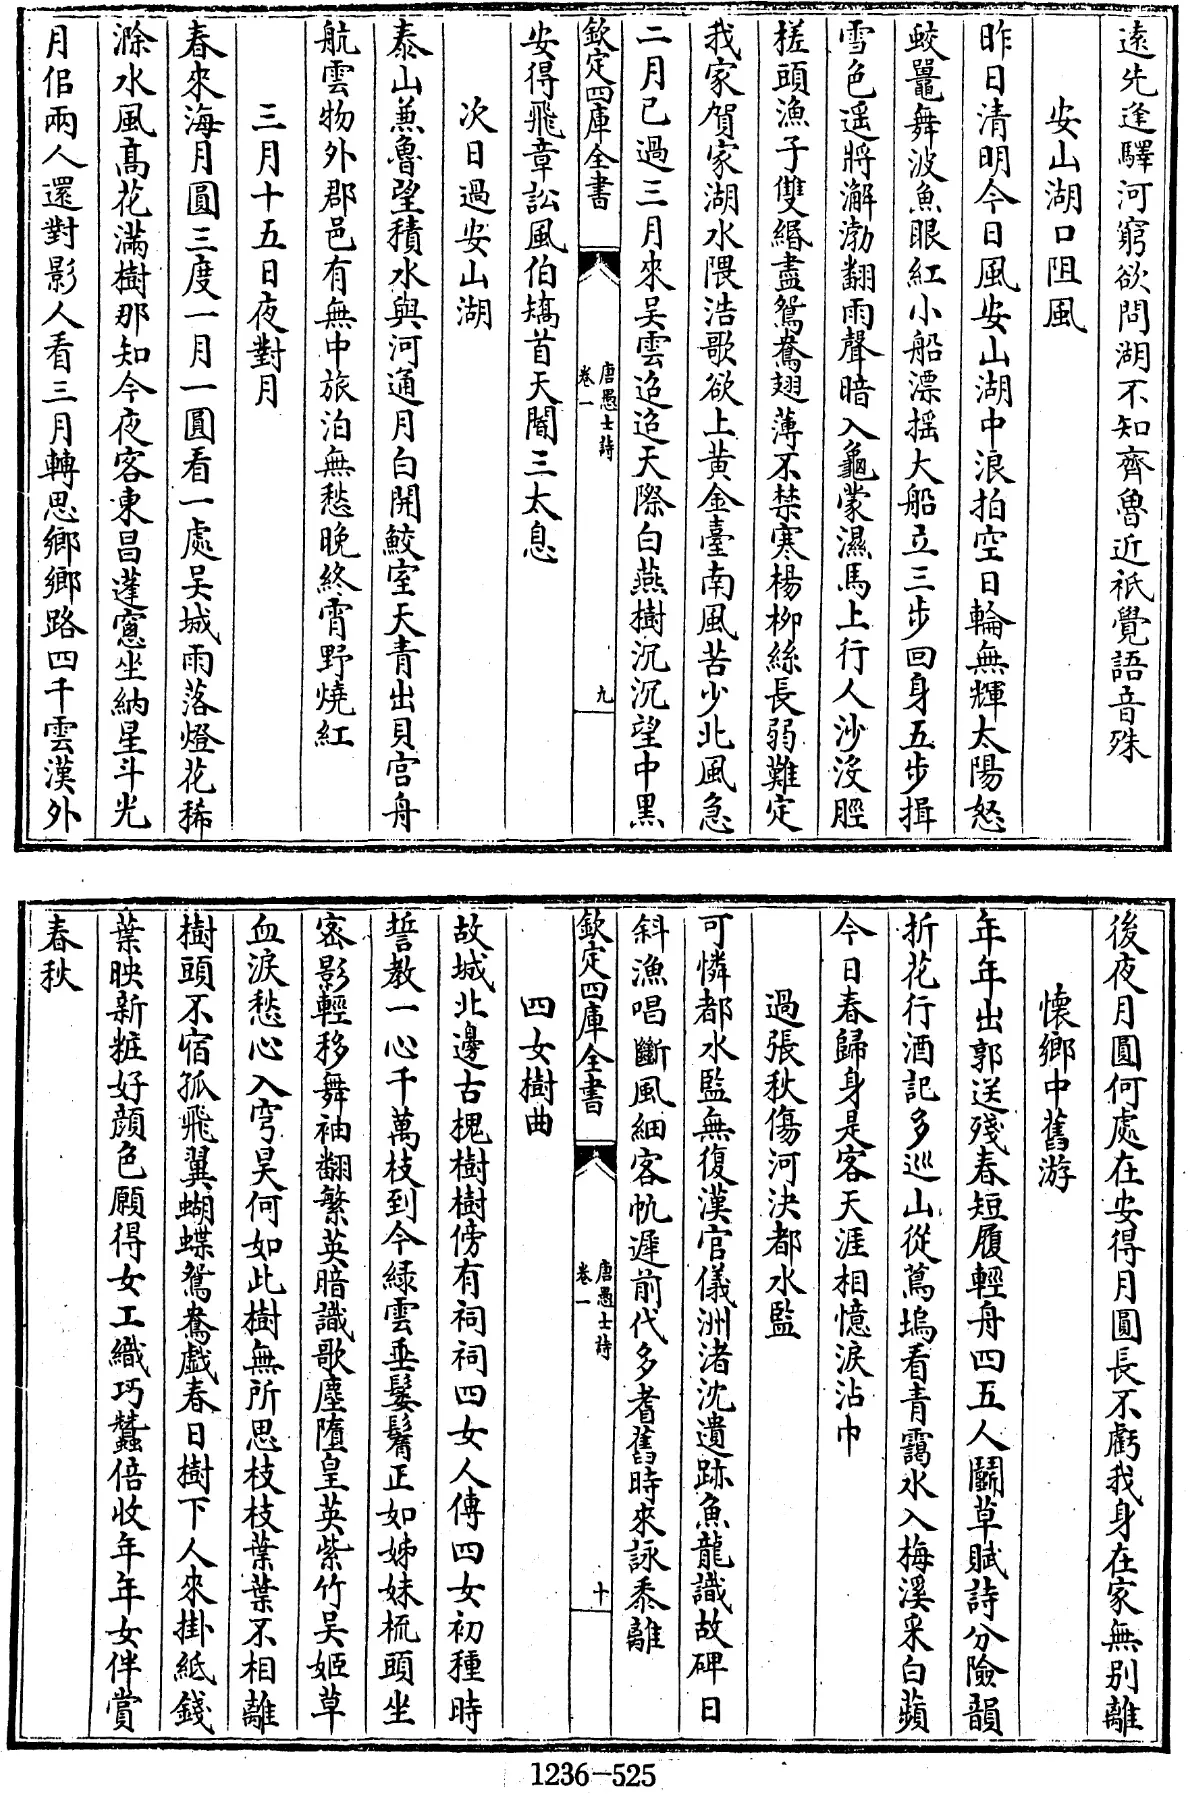 遠先逢驛河窮欲問湖不知齊魯近祇覺語音殊
安山湖口阻風
昨日清明今日風安山湖中浪拍空日輪無輝太陽怒
蛟鼉舞波魚眼紅小船漂摇大船立三步回身五步揖
雪色遥將澥渤翻雨聲暗入龜蒙濕馬上行人沙没脛
槎頭漁子雙綹盡鴛鴦翅薄不禁寒楊柳絲長弱難定
我家賀家湖水隈浩歌欲上黄金臺南風苦少北風急
二月已過三月來吴雲迢迢天際白燕樹沉沉望中黑
欽定四庫全書
唐愚士詩
卷一
九
安得飛章訟風伯矯首天閽三太息
次日過安山湖
泰山兼魯望積水與河通月白開鮫室天青出貝宫舟
航雲物外郡邑有無中旅泊無愁晚終宵野燒紅
三月十五日夜對月
春來海月圓三度一月一圓看一處吴城雨落燈花稀
滁水風高花滿樹那知今夜客東昌蓬窻坐納星斗光
月佀兩人還對影人看三月轉思鄉鄉路四千雲漢外
後夜月圓何處在安得月圓長不虧我身在家無别離
懷鄉中舊游
年年出郭送殘春短履輕舟四五人鬭草賦詩分險韻
折花行酒記多巡山從蔦塢看青靄水入梅溪采白蘋
今日春歸身是客天涯相憶淚沾巾
過張秋傷河決都水監
可憐都水監無復漢官儀洲渚沈遺跡魚龍識故碑日
斜漁唱斷風細客帆遲前代多耆舊時來詠黍離
欽定四庫全書
唐愚士詩
卷一
十
四女樹曲
故城北邊古槐樹樹傍有祠祠四女人傳四女初種時
誓教一心千萬枝到今緑雲垂鬖髾正如姊妹梳頭坐
密影輕移舞袖翻繁英暗識歌塵墮皇英紫竹吴姬草
血淚愁心入穹昊何如此樹無所思枝枝葉葉不相離
樹頭不宿孤飛翼蝴蝶鴛鴦戲春日樹下人來掛紙錢
葉映新粧好顔色願得女工織巧蠶倍收年年女伴賞
春秋
1236-525